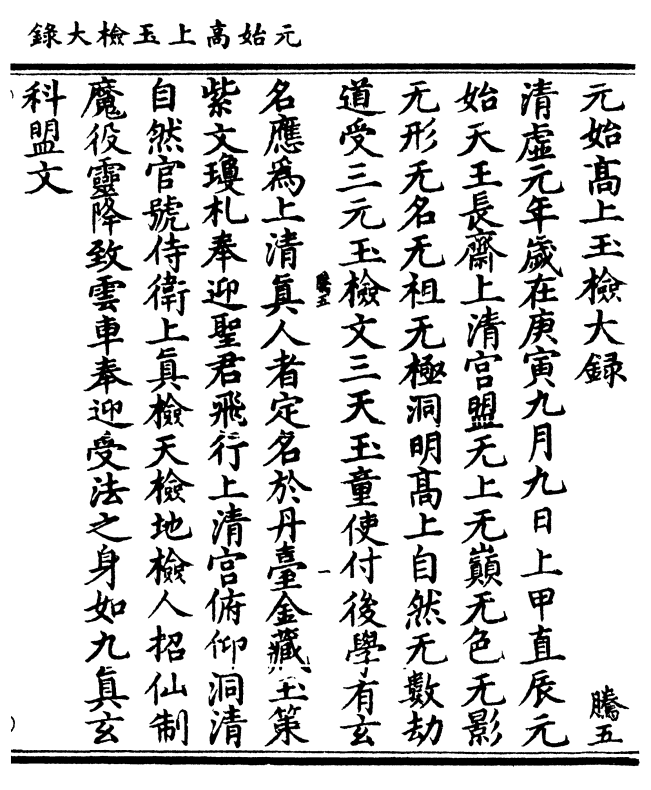 元始高上玉檢大錄
元始高上玉檢大録
騰五
清虛元年歲在庚寅九月九日上甲直辰元
始天王長齋上清宮盟无上无巔无色无影
无形无名无祖无極洞明高上自然无數劫
道受三元玉檢文三天玉童使付後學有玄
騰五
一
名應爲上清真人者定名於丹臺金藏玉策
紫文瓊札奉迎聖君飛行上清宮俯仰洞清
自然官號侍衛上真檢天檢地檢人招仙制
魔役靈降致雲車奉迎受法之身如九真玄
科盟文